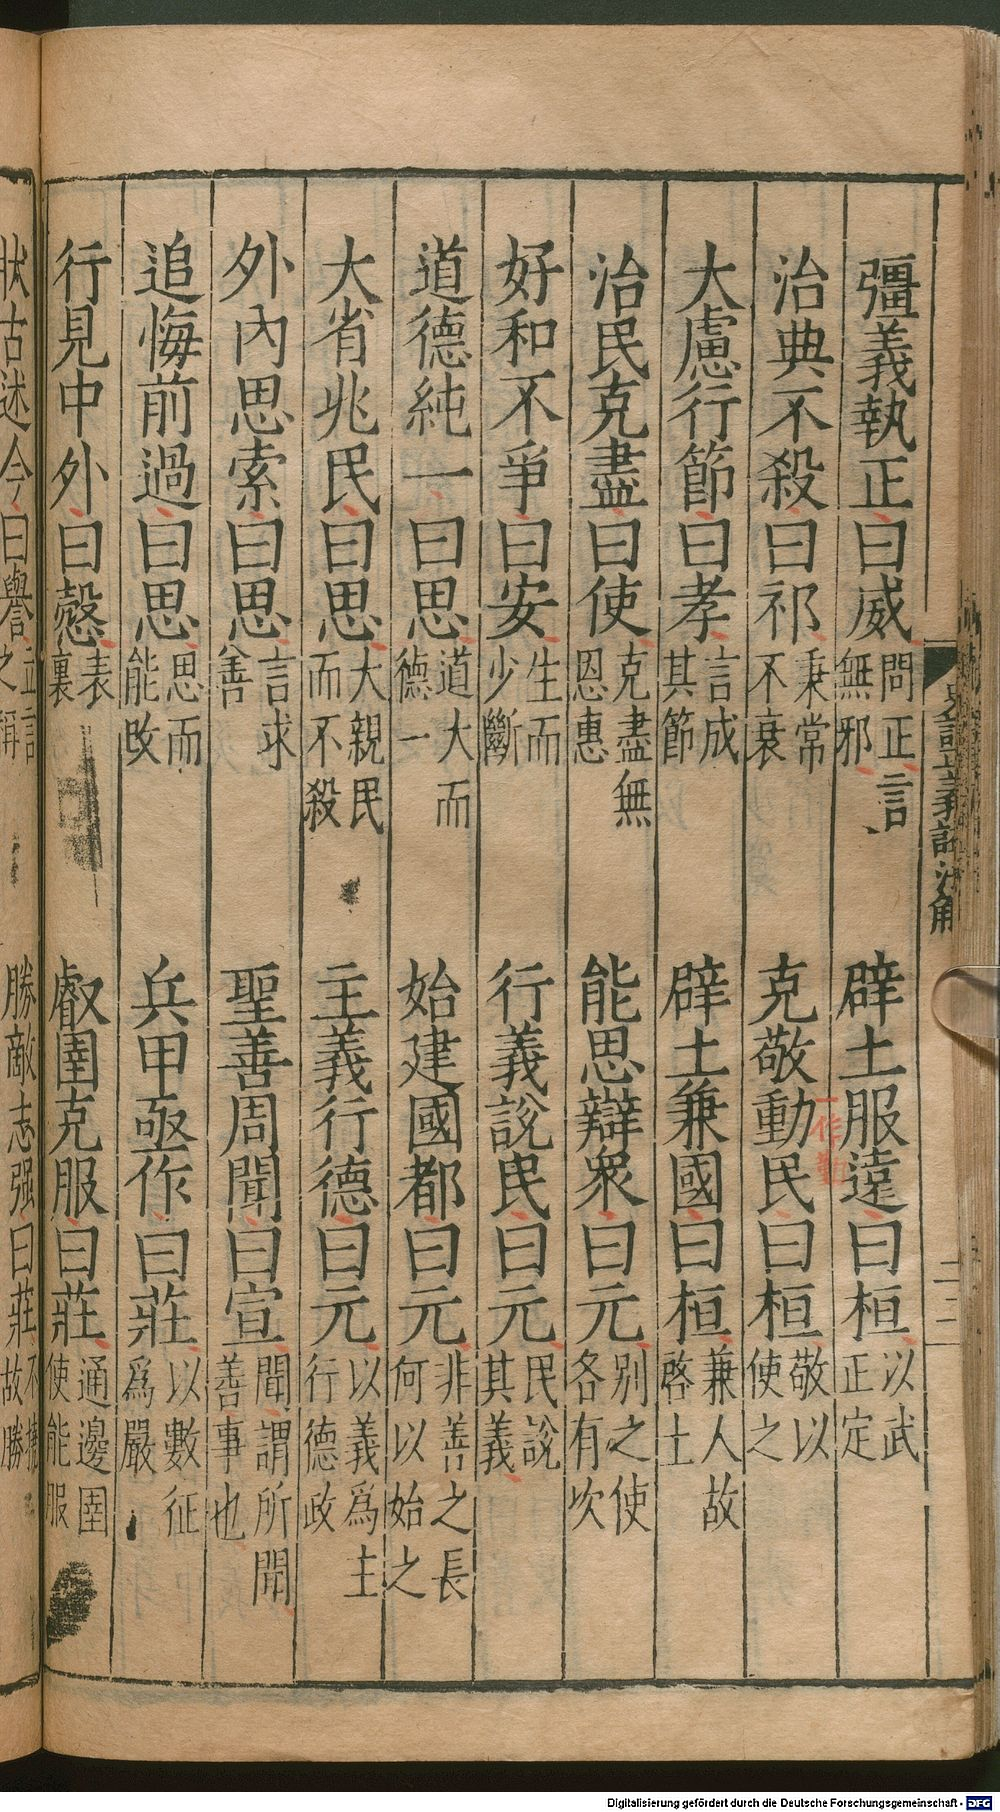 彊義執正曰威問正言無邪　辟土服遠曰桓以武正定
治典不殺曰祁秉常不衰　克敬動民曰桓敬以使之
一作勤
大慮行節曰孝言成其節　辟土兼國曰桓兼人故啓士
治民克盡曰使克盡無恩惠　能思辯衆曰元別之使各有次
好和不爭曰安生而少斷　行義說民曰元民說其義
道德純一曰思道大而德一　始建國都曰元非善之長何以始之
大省兆民曰思大親民而不殺　主義行德曰元以義爲主行德政
外內思索曰思言求善　聖善周聞曰宣聞謂所聞善事也
追悔前過曰思思而能改　兵甲亟作曰莊以數征爲嚴
行見中外曰愨表裏　叡圉克服曰莊通邊圉使能服
肽古述今曰譽立言之稱　勝敵志强曰莊不撓故勝
諡法解
二二
Digitalisierung gefördert durch die Deutsche Forschungsgemeinschaft - DFG